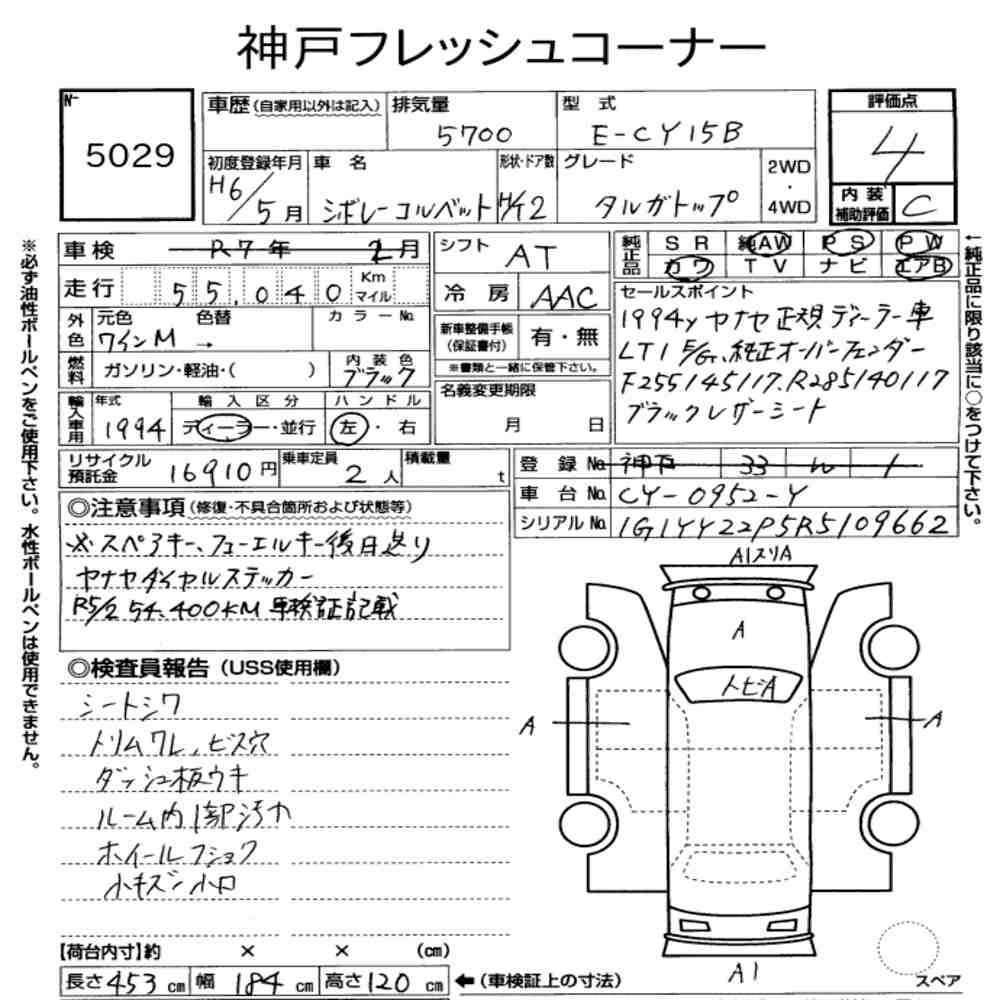 神戸フレッシュコーナー
No
5029
車歴(自家用以外は記入)
排気量
5700
型 式
E-CY15B
評価点
4
内装
補助評価
C
初度登録年月
H6/5月
車 名
シボレーコルベット
形状・ドア数
H/T2
グレード
タルガトップ
2WD
・
4WD
車検
R7年 2月
走行
55,040
Km
マイル
シフト
AT
冷 房
AAC
純正品
SR 純AW PS PW
カワ TV ナビ エアB
外色
元色
ワインM
色替
→
カラーNo.
燃料
ガソリン・軽油・( )
内装色
ブラック
新車整備手帳
(保証書付)
有・無
※書類と一緒に保管下さい。
名義変更期限
月 日
セールスポイント
1994y ヤナセ正規ディーラー車
LT1 E/G、純正オーバーフェンダー
F255145117.R285140117
ブラックレザーシート
輸入車用
年式
1994
輸入区分
ディーラー・並行
ハンドル
左・右
リサイクル
預託金
16910円
乗車定員
2人
積載量
t
登録No. 神戸 33 1
車台No. CY-0952-Y
シリアルNo. 1G1YY22P5R5109662
◎注意事項(修復・不具合箇所および状態等)
※スペアキー、フューエルキー後日送り
ヤナセダイヤルステッカー
R5/2 54,400KM 車検証記載
◎検査員報告(USS使用欄)
シートシワ
トリムワレ、ビス穴
ダッシュ板ウキ
ルーム内1部汚れ
ホイールフショク
小キズ、小凹
A1スリA
A
トビA
A
A
A1
スペア
【荷台内寸】約 × × (cm)
長さ453cm 幅184cm 高さ120cm
←(車検証上の寸法)
※必ず油性ボールペンをご使用下さい。水性ボールペンは使用できません。
←純正品に限り該当に○をつけて下さい。